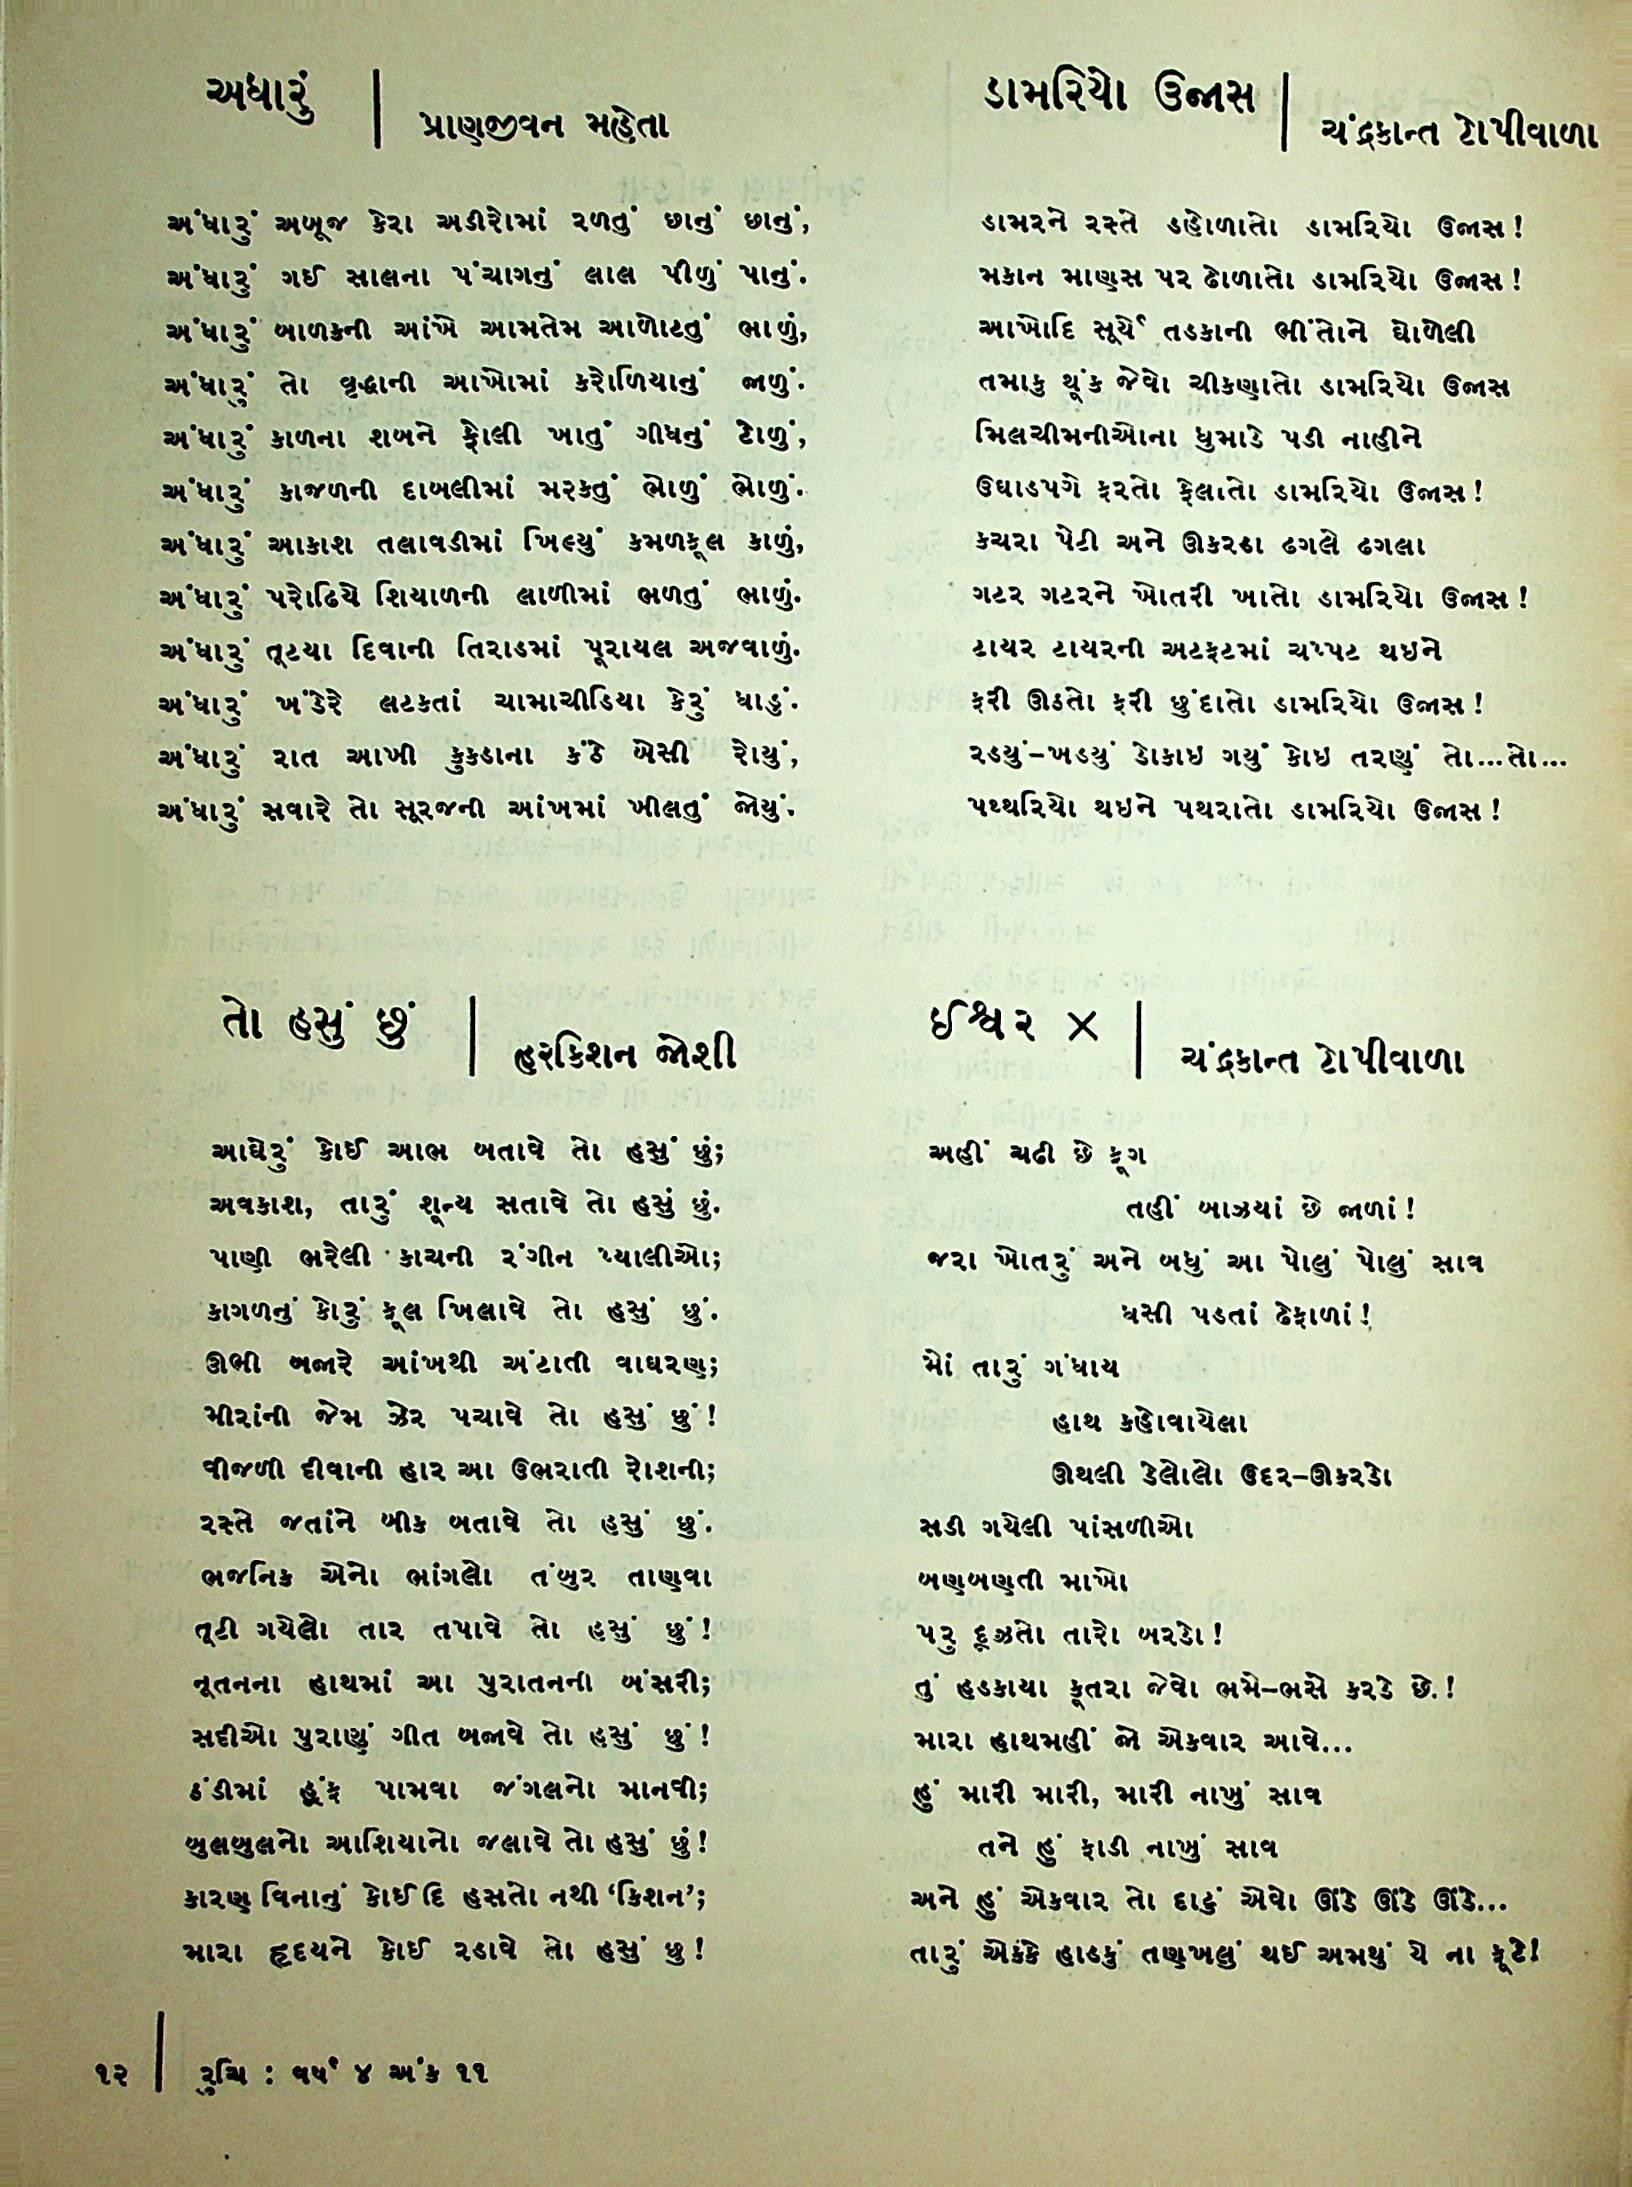 અધારું
પ્રાણજીવન મહેતા
અંધારું અબૂજ કેરા અડીરોમાં રળતું છાનું છાનું,
અંધારું ગઈ સાલના પંચાગનું લાલ પીળું પાનું.
અંધારું બાળકની આંખે આમતેમ આળોટતું ભાળું,
અંધારું તો વૃદ્ધાની આખોમાં કરોળિયાનું જાળું.
અંધારું કાળના શબને ફોલી ખાતું ગીધનું ટોળું,
અંધારું કાજળની દાબલીમાં મરકતું ભોળું ભોળું.
અંધારું આકાશ તલાવડીમાં ખિલ્યું કમળફૂલ કાળું,
અંધારું પરોઢિયે શિયાળની લાળીમાં ભળતું ભાળું.
અંધારું તૂટયા દિવાની તિરાડમાં પૂરાયલ અજવાળું.
અંધારું ખંડેરે લટકતાં ચામાચીડિયા કેરું ધાડું.
અંધારું રાત આખી કુકડાના કંઠે બેસી રોયું,
અંધારું સવારે તો સૂરજની આંખમાં ખીલતું જોયું.
ડામરિયો ઉજાસ
ચંદ્રકાન્ત ટોપીવાળા
ડામરને રસ્તે ડહોળાતો ડામરિયો ઉજાસ!
મકાન માણસ પર ઢોળાતો ડામરિયો ઉજાસ!
આખોદિ સૂર્યે તડકાની ભીંતોને ધોળેલી
તમાકુ થૂંક જેવો ચીકણાતો ડામરિયો ઉજાસ
મિલચીમનીઓના ધુમાડે પડી નાહીને
ઉઘાડપગે ફરતો ફેલાતો ડામરિયો ઉજાસ!
કચરા પેટી અને ઊકરડા ઢગલે ઢગલા
ગટર ગટરને ખોતરી ખાતો ડામરિયો ઉજાસ!
ટાયર ટાયરની અટફટમાં ચપ્પટ થઇને
ફરી ઊઠતો ફરી છુંદાતો ડામરિયો ઉજાસ!
રડયું–ખડયું ડોકાઇ ગયું કોઇ તરણું તો...તો...
પથ્થરિયો થઇને પથરાતો ડામરિયો ઉજાસ!
તો હસું છું
હરકિશન જોશી
આઘેરું કોઈ આભ બતાવે તો હસું છું;
અવકાશ, તારું શૂન્ય સતાવે તો હસું છું.
પાણી ભરેલી કાચની રંગીન પ્યાલીઓ;
કાગળનું કોરું ફૂલ ખિલાવે તો હસું છું.
ઊભી બજારે આંખથી અંટાતી વાઘરણ;
મીરાંની જેમ ઝેર પચાવે તો હસું છું!
વીજળી દીવાની હાર આ ઉભરાતી રોશની;
રસ્તે જતાંને બીક બતાવે તો હસું છું.
ભજનિક એનો ભાંગલો તંબુર તાણવા
તૂટી ગયેલો તાર તપાવે તો હસું છું!
નૂતનના હાથમાં આ પુરાતનની બંસરી;
સદીઓ પુરાણું ગીત બજાવે તો હસું છું!
ઠંડીમાં હૂંફ પામવા જંગલનો માનવી;
બુલબુલનો આશિયાનો જલાવે તો હસું છું!
કારણ વિનાનું કોઈ દિ હસતો નથી ‘કિશન’;
મારા હૃદયને કોઈ રડાવે તો હસું છુ!
ઈશ્વર ×
ચંદ્રકાન્ત ટોપીવાળા
અહીં ચઢી છે ફૂગ
તહીં બાઝયાં છે જાળાં!
જરા ખોતરું અને બધું આ પોલું પોલું સાવ
ધસી પડતાં ઢેફાળાં!
મોં તારું ગંધાય
હાથ કહોવાયેલા
ઊથલી ડેલોલો ઉદર–ઊકરડો
સડી ગયેલી પાંસળીઓ
બણબણતી માખો
પરુ દૂઝતો તારો બરડો!
તું હડકાયા કૂતરા જેવો ભમે–ભસે કરડે છે.!
મારા હાથમહીં જો એકવાર આવે...
હું મારી મારી, મારી નાખું સાવ
તને હું ફાડી નાખું સાવ
અને હું એકવાર તો દાટું એવો ઊંડે ઊંડે ઊંડે...
તારું એકકે હાડકું તણખલું થઈ અમથું યે ના ફૂટે!
૧૨
રુચિ : વર્ષ ૪ અંક ૧૧